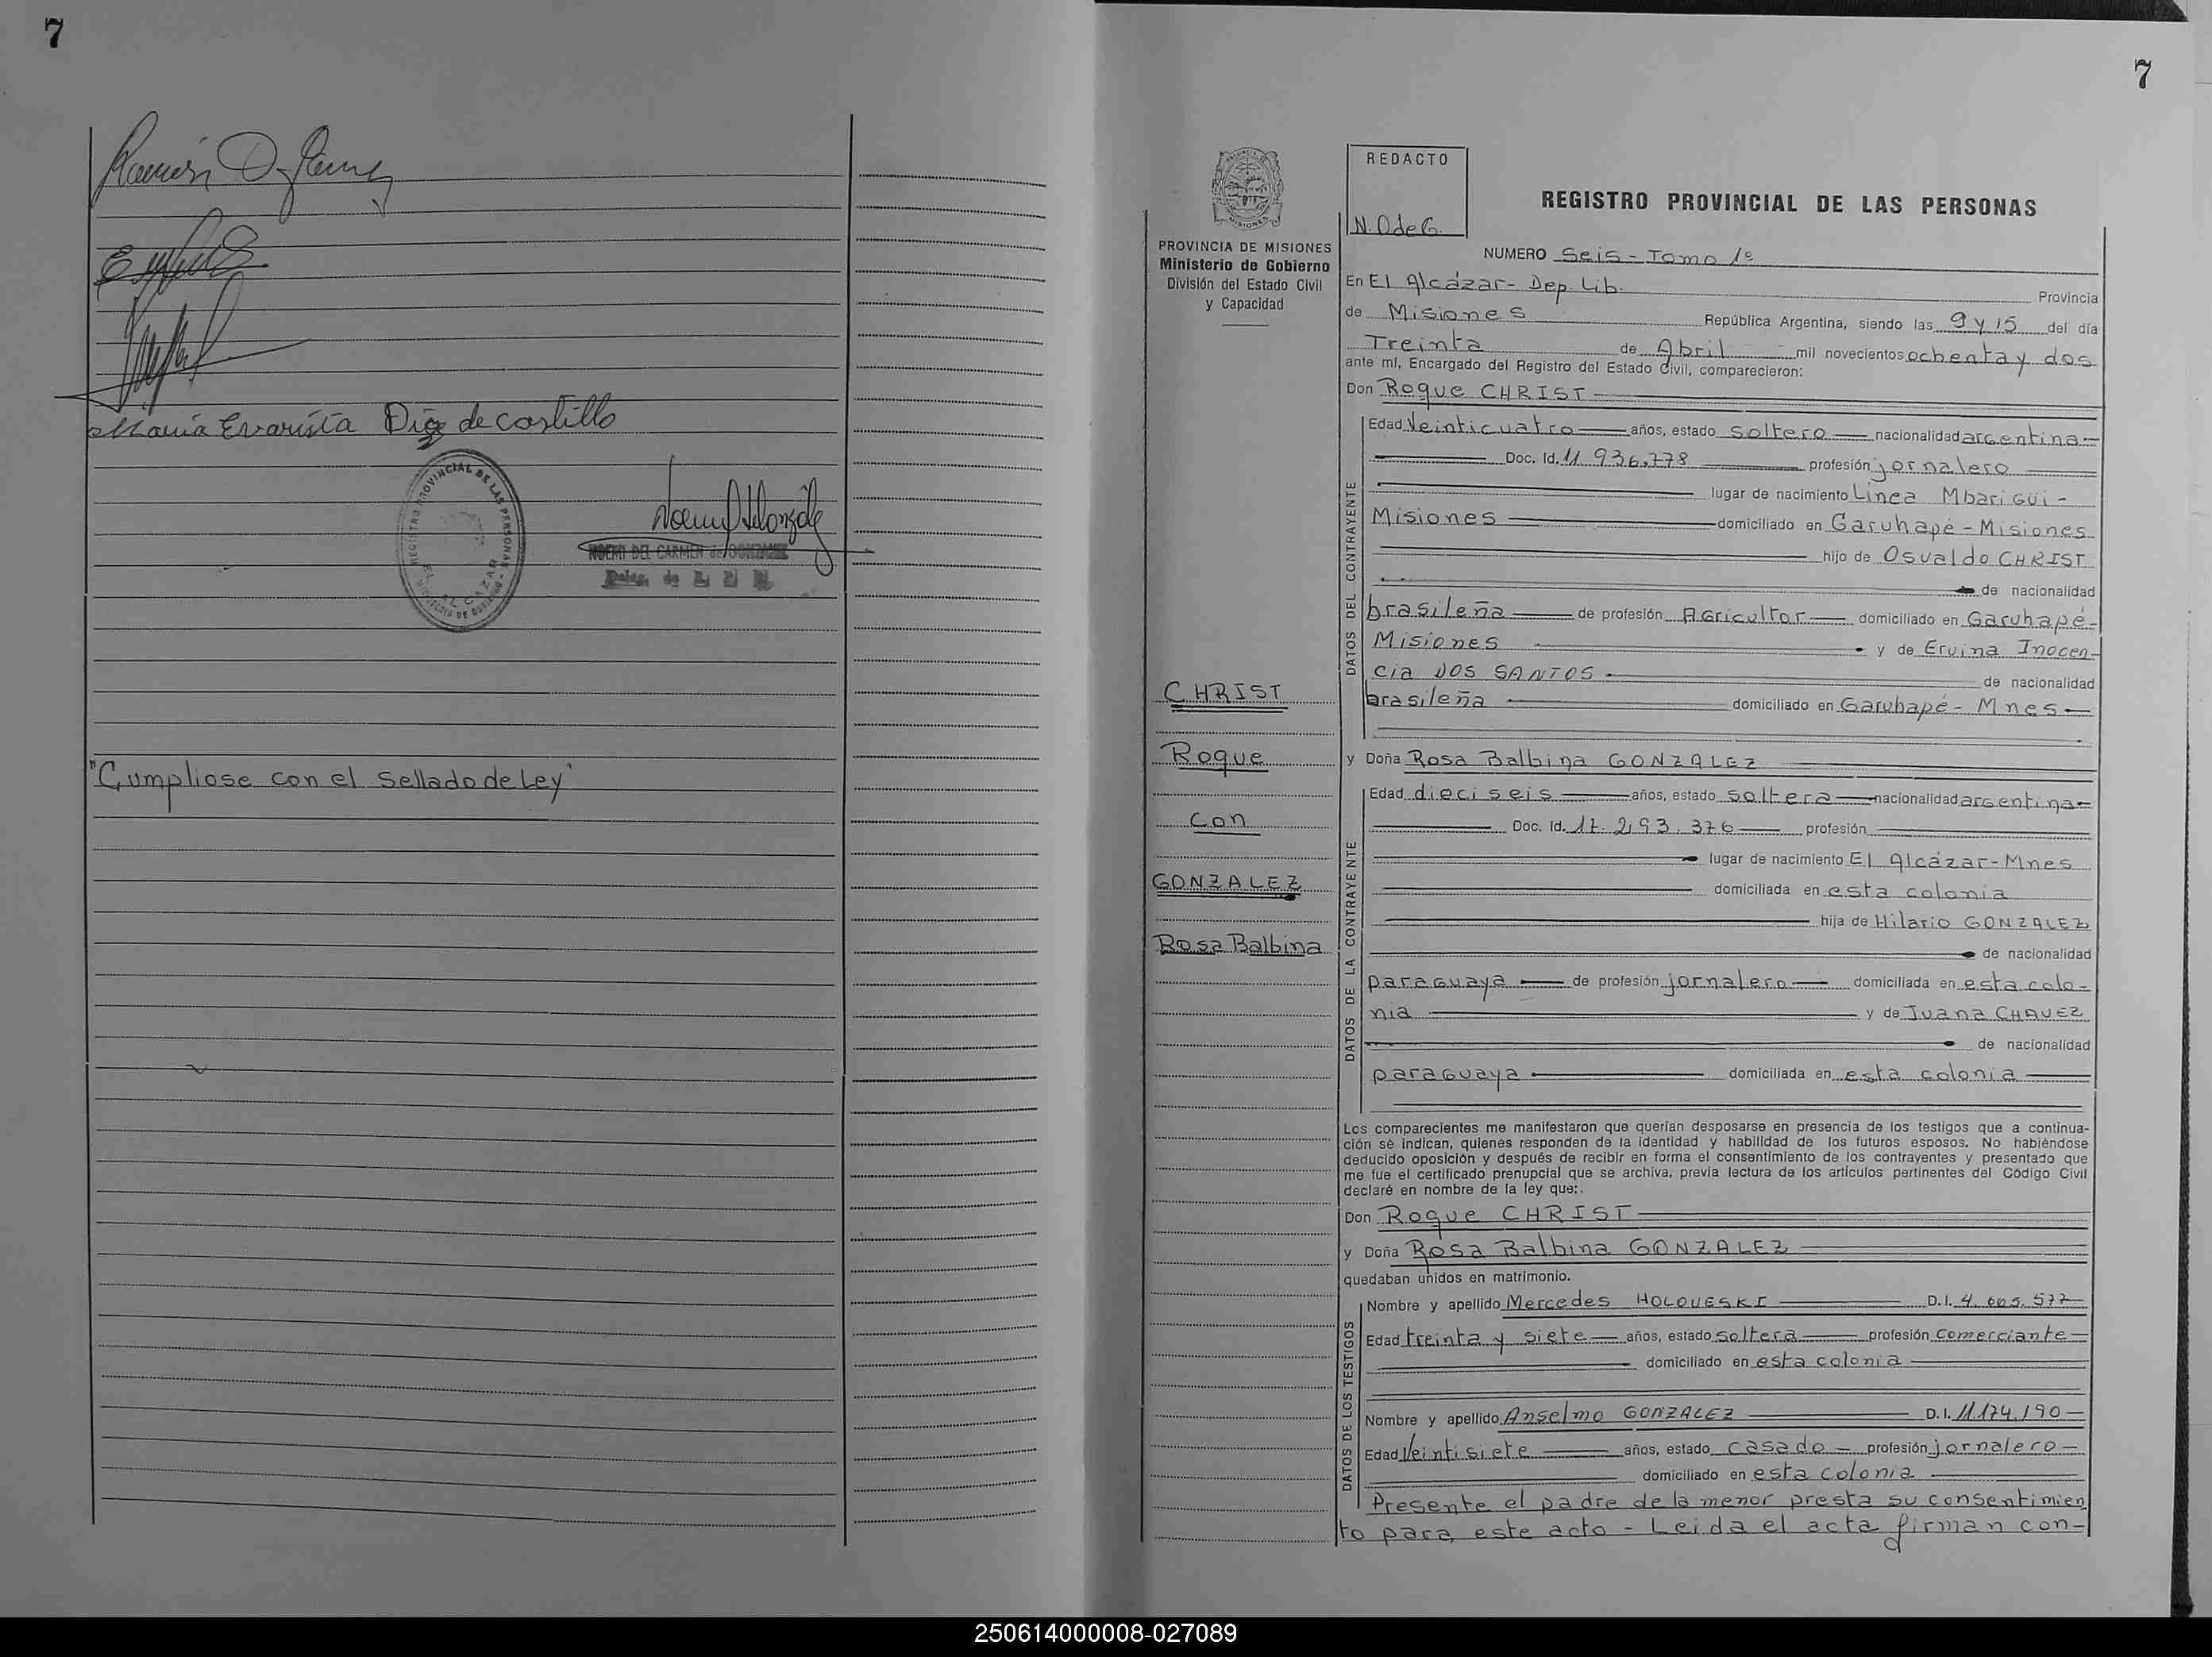 7
María Evarista Díaz de Castillo
REGISTRO PROVINCIAL DE LAS PERSONAS
EL ALCAZAR
NOEMI DEL CARMEN de GONZALEZ
"Cumpliose con el sellado de Ley"
7
PROVINCIA DE MISIONES
Ministerio de Gobierno
División del Estado Civil
y Capacidad
CHRIST
Roque
con
GONZALEZ
Rosa Balbina
REDACTO
N. O de G.
REGISTRO PROVINCIAL DE LAS PERSONAS
NUMERO Seis - Tomo 1º
En El Alcázar - Dep. Lib. Provincia
de Misiones República Argentina, siendo las 9 y 15 del día
Treinta de Abril mil novecientos ochenta y dos
ante mí, Encargado del Registro del Estado Civil, comparecieron:
Don Roque CHRIST
DATOS DEL CONTRAYENTE
Edad Veinticuatro años, estado soltero nacionalidad argentina
Doc. Id. 11.936.778 profesión jornalero
lugar de nacimiento Linea Mbarigui -
Misiones domiciliado en Garuhapé - Misiones
hijo de Osvaldo CHRIST
de nacionalidad
brasileña de profesión Agricultor domiciliado en Garuhapé -
Misiones y de Ervina Inocen-
cia DOS SANTOS de nacionalidad
brasileña domiciliado en Garuhapé - Mnes
y Doña Rosa Balbina GONZALEZ
DATOS DE LA CONTRAYENTE
Edad dieciseis años, estado soltera nacionalidad argentina
Doc. Id. 17.293.376 profesión
lugar de nacimiento El Alcázar - Mnes
domiciliada en esta colonia
hija de Hilario GONZALEZ
de nacionalidad
paraguaya de profesión jornalero domiciliada en esta colo-
nia y de Juana CHAVEZ
de nacionalidad
paraguaya domiciliada en esta colonia
Los comparecientes me manifestaron que querían desposarse en presencia de los testigos que a continua-
ción se indican, quienes responden de la identidad y habilidad de los futuros esposos. No habiéndose
deducido oposición y después de recibir en forma el consentimiento de los contrayentes y presentado que
me fue el certificado prenupcial que se archiva, previa lectura de los artículos pertinentes del Código Civil
declaré en nombre de la ley que:
Don Roque CHRIST
y Doña Rosa Balbina GONZALEZ
quedaban unidos en matrimonio.
DATOS DE LOS TESTIGOS
Nombre y apellido Mercedes HOLOVESKI D.I. 4.605.577
Edad treinta y siete años, estado soltera profesión comerciante
domiciliado en esta colonia
Nombre y apellido Anselmo GONZALEZ D.I. 11.174.190
Edad Veintisiete años, estado casado profesión jornalero
domiciliado en esta colonia
Presente el padre de la menor presta su consentimien
to para este acto - Leida el acta firman con-
250614000008-027089